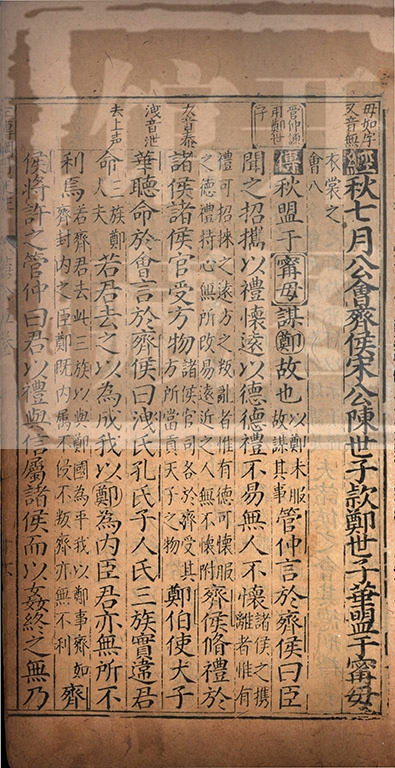 毋如字
又音無
經秋七月公會齊侯宋公陳世子款鄭世子華盟于甯毋
衣裳之
會八
管仲諫
用鄭世
子
傳秋盟于甯毋謀鄭故也以鄭未服故謀其事管仲言於齊侯曰臣
聞之招攜以禮懷遠以德德禮不易無人不懷諸侯之携離者惟有
禮可招徠之遠方之叛亂者惟有德可懷服之德禮持心無所改易遠近之人無不懷附齊侯脩禮於
大音泰
諸侯諸侯官受方物諸侯官司各於齊受其方所當貢天子之物鄭伯使大子
洩音泄
華聽命於會言於齊侯曰洩氏孔氏子人氏三族實違君
去上声
命三族鄭大夫若君去之以為成我以鄭為内臣君亦無所不
利焉若齊君去此三族以與鄭國為平我以鄭事齊如齊封内之臣鄭既内属不侵不叛齊亦無不利齊
侯將許之管仲曰君以禮與信屬諸侯而以姦終之無乃